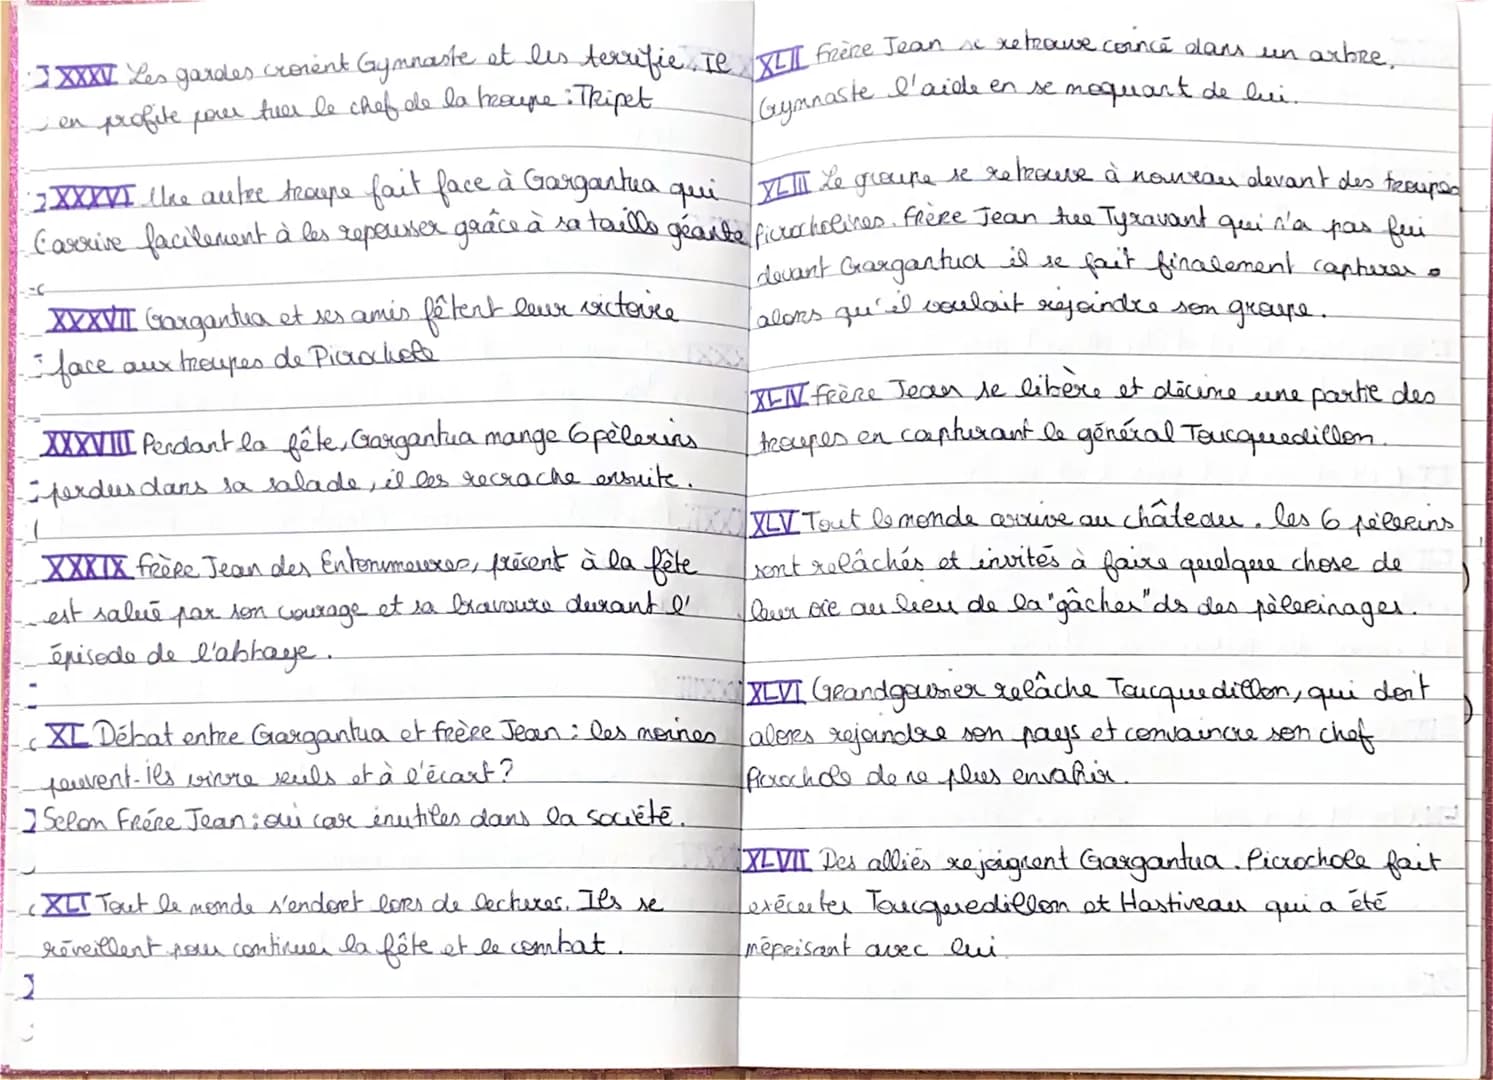 XXXV Les gardes croient Gymnaste et les terrifie. Il
en profite pour tuer le chef de la troupe : Tripet
XXXVI Une autre troupe fait face à Gargantua qui
arrive facilement à les repousser grâce à sa taille géante
XXXVII Gargantua et ses amis fêtent leur victoire
face aux troupes de Picrochole
XXXVIII Pendant la fête, Gargantua mange 6 pèlerins
perdus dans sa salade, il les recrache ensuite.
XXXIX frère Jean des Entommeures, présent à la fête
est salué par son courage et sa bravoure durant l'
épisode de l'abbaye.
XL Débat entre Gargantua et frère Jean : les moines
peuvent-ils vivre seuls et à l'écart ?
Selon Frère Jean : oui car inutiles dans la société.
XLI Tout le monde s'endort lors de lectures. Ils se
réveillent pour continuer la fête et le combat.
XLII Frère Jean se retrouve coincé dans un arbre.
Gymnaste l'aide en se moquant de lui.
XLIII Le groupe se retrouve à nouveau devant des troupes
picrocholines. frère Jean tue Tyravant qui n'a pas fui
devant Gargantua il se fait finalement capturer
alors qu'il voulait rejoindre son groupe.
XLIV frère Jean se libère et décime une partie des
troupes en capturant le général Toucquedillon.
XLV Tout le monde arrive au château. les 6 pèlerins
sont relâchés et invités à faire quelque chose de
leur vie au lieu de la "gâcher" ds des pèlerinages.
XLVI Grandgousier relâche Toucquedillon, qui doit
alors rejoindre son pays et convaincre son chef
Picrochole de ne plus envahir.
XLVII Des alliés rejoignent Gargantua. Picrochole fait
exécuter Toucquedillon et Hastiveau qui a été
méprisant avec lui